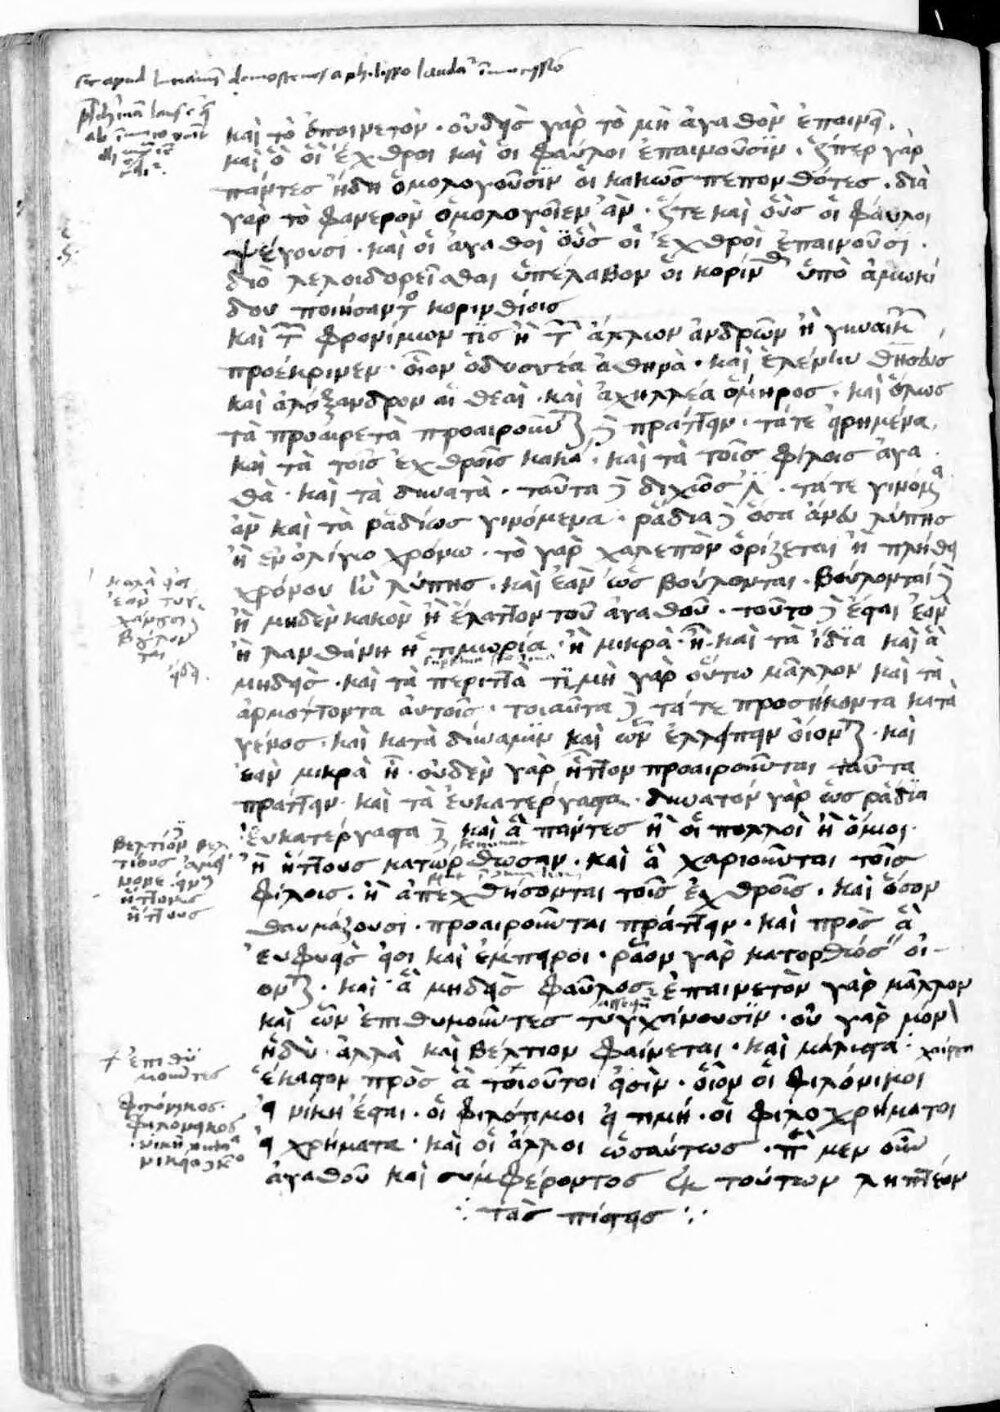 καὶ τὸ ἐπαινετὸν· οὐδεὶς γὰρ τὸ μὴ ἀγαθὸν ἐπαινεῖ.
καὶ ὃ οἱ ἐχθροὶ καὶ οἱ φαῦλοι ἐπαινοῦσιν· ὥσπερ γὰρ
πάντες ἤδη ὁμολογοῦσιν οἱ κακῶς πεπονθότες· διὰ
γὰρ τὸ φανερὸν ὁμολογοῖεν ἂν· ὥστε καὶ οὓς οἱ φαῦλοι
ψέγουσι· καὶ οἱ ἀγαθοὶ οὓς οἱ ἐχθροὶ ἐπαινοῦσι·
διὸ λελοιδορεῖσθαι ὑπέλαβον οἱ κορίνθ ὑπὸ σιμωνί
δου ποιήσαντος κορινθίοις
καὶ τῶν φρονίμων τὶς ἢ τῶν ἄλλων ἀνδρῶν ἢ γυναικῶν
προέκρινεν· οἷον ὀδυσσέα ἀθηνᾶ· καὶ ἑλένην θησεὺς
καὶ ἀλέξανδρον αἱ θεαὶ· καὶ ἀχιλλέα ὅμηρος· καὶ ὅλως
τὰ προαιρετὰ προαιροῦνται δὲ πράττειν· τά τε εἰρημένα,
καὶ τὰ τοῖς ἐχθροῖς κακὰ· καὶ τὰ τοῖς φίλοις ἀγα
θὰ· καὶ τὰ δυνατὰ· ταῦτα δὲ διχῶς ἐστι· τά τε γινόμενα
ἂν καὶ τὰ ῥᾳδίως γινόμενα· ῥᾴδια δὲ ὅσα ἄνευ λύπης
ἢ ἐν ὀλίγῳ χρόνῳ· τὸ γὰρ χαλεπὸν ὁρίζεται ἢ πλήθει
χρόνου ἢ λύπης· καὶ ἐὰν ὡς βούλονται· βούλονται δὲ
ἢ μηδὲν κακὸν ἢ ἔλαττον τοῦ ἀγαθοῦ· τοῦτο δὲ ἔσται ἐὰν
ἢ λανθάνῃ ἡ τιμωρία· ἢ μικρὰ ᾖ· καὶ τὰ ἴδια καὶ ἃ
μηδεὶς· καὶ τὰ περιττὰ τιμὴ γὰρ οὕτω μᾶλλον καὶ τὰ
ἁρμόττοντα αὐτοῖς· τοιαῦτα δὲ τά τε προσήκοντα κατὰ
γένος· καὶ κατὰ δύναμιν καὶ ὧν ἐλλείπειν οἴονται· καὶ
ἐὰν μικρὰ ᾖ· οὐδὲν γὰρ ἧττον προαιροῦνται ταῦτα
πράττειν· καὶ τὰ εὐκατέργαστα· δυνατὸν γὰρ ὡς ῥᾴδια
εὐκατέργαστα δὲ καὶ ἃ πάντες ἢ οἱ πολλοὶ ἢ ὅμοιοι·
ἢ ἥττους κατώρθωσαν· καὶ ἃ χαριοῦνται τοῖς
φίλοις· ἢ ἀπεχθήσονται τοῖς ἐχθροῖς· καὶ ὅσον
θαυμάζουσι· προαιροῦνται πράττειν· καὶ πρὸς ἃ
εὐφυεῖς εἰσι καὶ ἔμπειροι· ῥᾷον γὰρ κατορθώσειν οἴ-
ονται· καὶ ἃ μηδεὶς φαῦλος· ἐπαινετὸν γὰρ μᾶλλον
καὶ ὧν ἐπιθυμοῦντες τυγχάνουσιν· οὐ γὰρ μόνον
ἡδὺ· ἀλλὰ καὶ βέλτιον φαίνεται· καὶ μάλιστα
ἕκαστον πρὸς ἃ τοιοῦτοι εἰσὶν· οἷον οἱ φιλόνικοι
εἰ νίκη ἔσται· οἱ φιλότιμοι εἰ τιμὴ· οἱ φιλοχρήματοι
εἰ χρήματα· καὶ οἱ ἄλλοι ὡσαύτως· περὶ μὲν οὖν
ἀγαθοῦ καὶ συμφέροντος ἐκ τούτων ληπτέον
∴ τὰς πίστεις ∴
βούλον
ται
ἥττονας
ἥττους
ἐπιθυ
μοῦντες